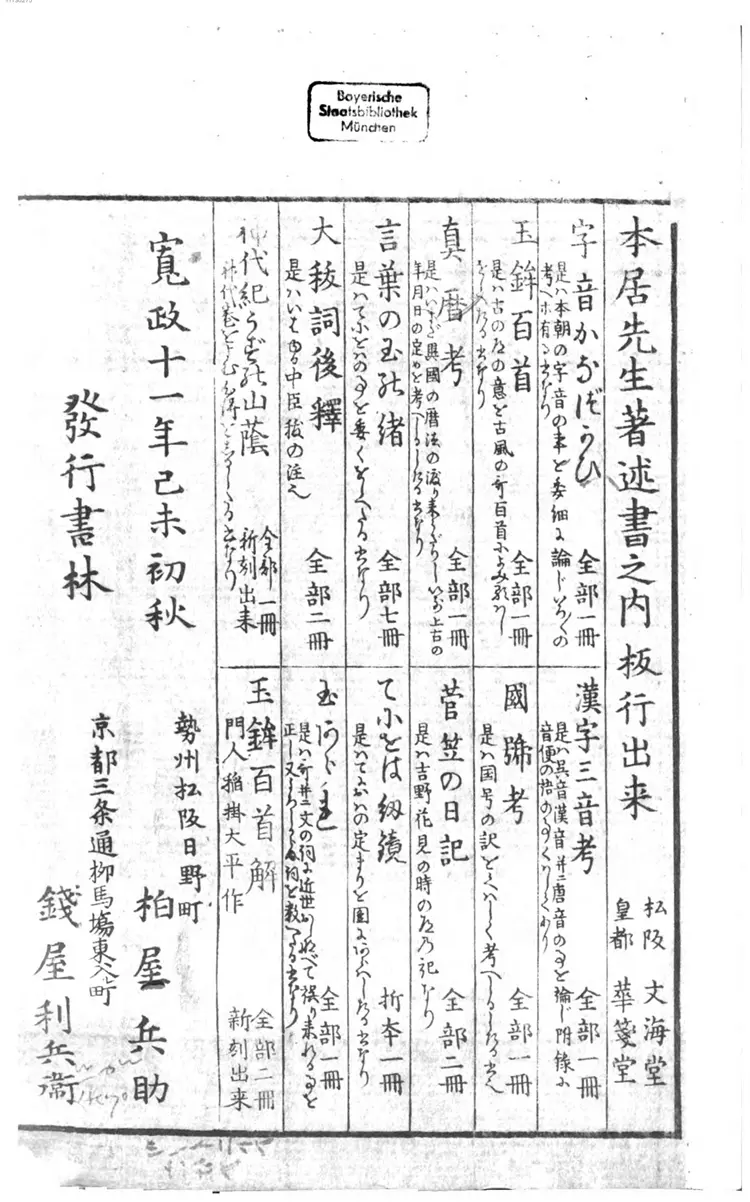 Bayerische
Staatsbibliothek
München
本居先生著述書之内板行出来
松阪 文海堂
皇都 華箋堂
字音かなづかひ
是ハ本朝の字音の事を委細に論じ
全部一冊
漢字三音考
是ハ呉音漢音并ニ唐音の事を論じ附録に
音便の
全部一冊
玉鉾百首
是ハ古の道の意を古風の哥百首によみ
全部一冊
國號考
是ハ国号の訳をくはしく考へしるしたる書也
全部一冊
真暦考
異國の暦法の渡り来
上古の
年月日の定めを考へしるしたる書なり
全部一冊
菅笠の日記
是ハ吉野花見の時の道乃記なり
全部二冊
言葉の玉の緒
是ハてにをはの事を委くをしへたる書なり
全部七冊
てにをは紐鏡
是ハてにをはの定まりを圖に
折本一冊
大祓詞後釋
是ハいはゆる中臣祓の注也
全部二冊
玉あられ
是ハ哥并ニ文の詞の近世
誤り来れる事を
正し又
全部一冊
神代紀うずの山蔭
全部一冊
新刻出来
玉鉾百首解
門人稲掛大平作
全部二冊
新刻出来
寛政十一年己未初秋
發行書林
勢州松阪日野町
柏屋兵助
京都三条通柳馬場東入町
錢屋利兵衞